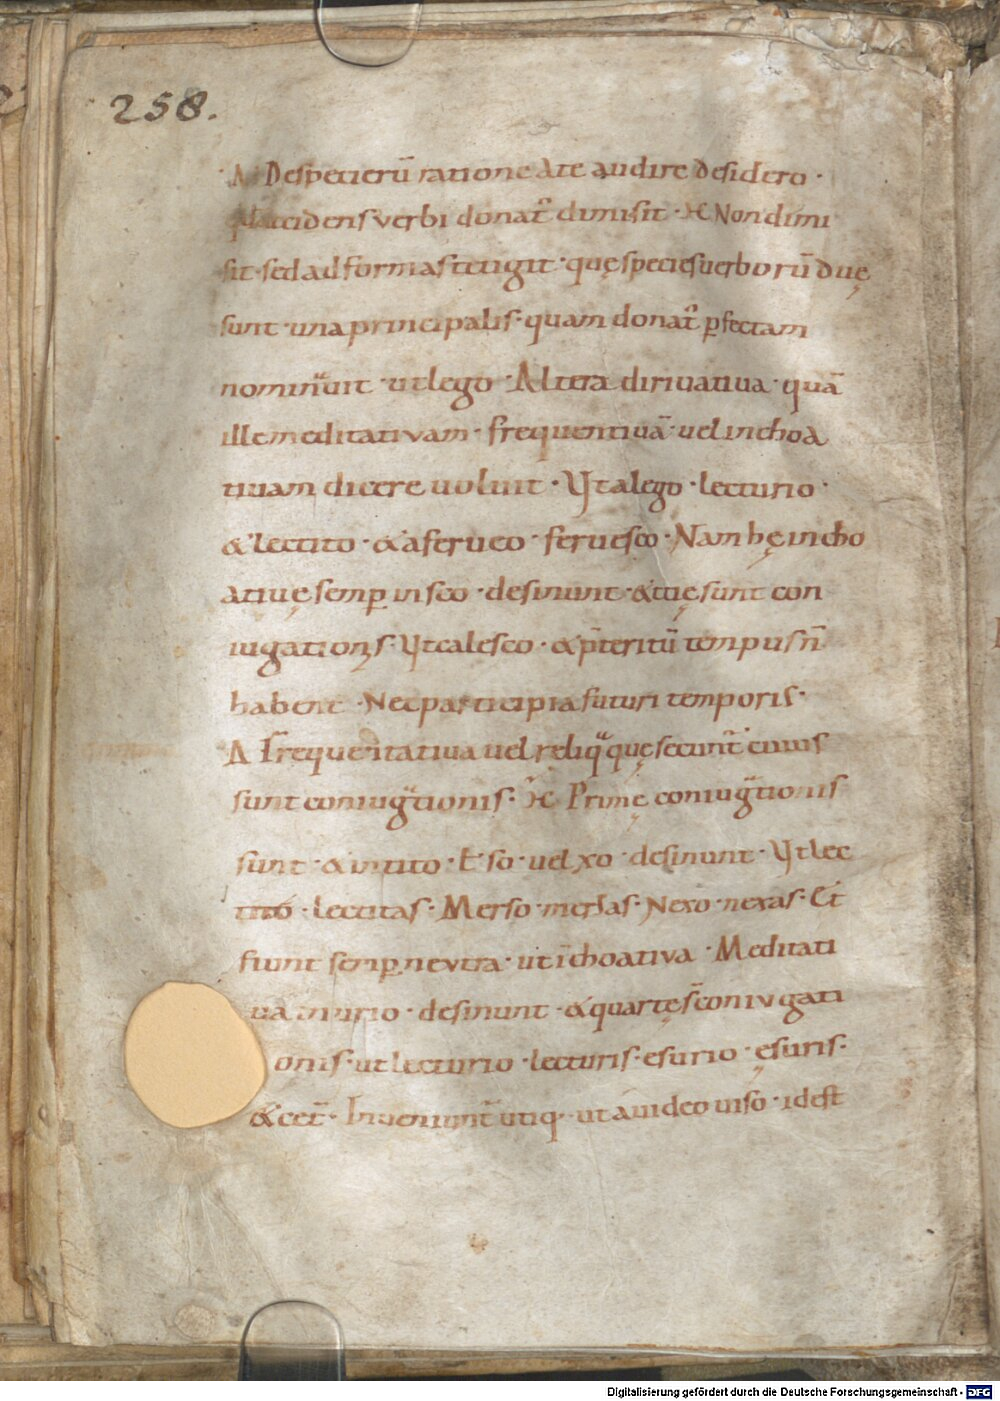 258.
Δ Despecierū ratione Ate audire desidero ·
accidens verbi donat̄ dimisit · M Non dimi
sit · sed ad formas tetigit · quę species uerborū duę
sunt · una principalis · quam donat̄ ꝑfectam
nominauit · ut lego · Altera diriuatiua · quā
ille meditativam · frequentiuā · uel inchoa
tiuam dicere uoluit · Ut a lego · lecturio ·
& lectito · & a ferueo · feruesco · Nam hę incho
atiuę semꝑ in sco · desinunt · & tię sunt con
iugationis · Ut calesco · & p̄teritū tempus n̄
habent · Nec participia futuri temporis ·
Δ Frequentatiua uel reliqua quę secunt̄ cuius
sunt coniugationis · M Primę coniugationis
sunt · & in tito · t̄ so · uel xo · desinunt · Ut lec
tito · lectitas · Merso · mersas · Nexo · nexas · Et
fiunt semꝑ nevtra · ut īchoativa · Meditati
ua in urio · desinunt · & quartę s̄ coniugati
onis · ut lecturio · lecturis · esurio · ęsuris ·
& cet̄ · Inueniunt̄ utiq · ut a uideo uiso · id est
Digitalisierung gefördert durch die Deutsche Forschungsgemeinschaft - DFG